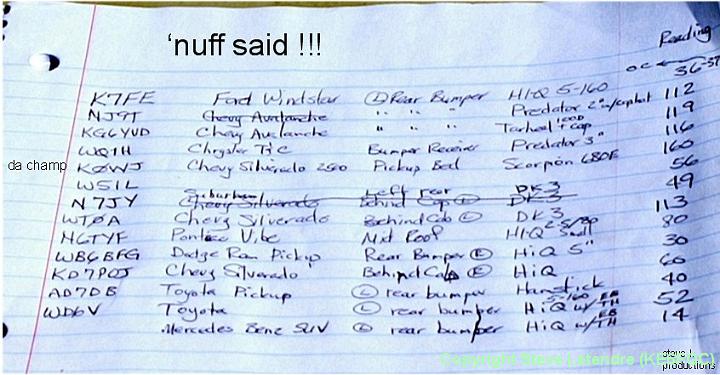 ‘nuff said !!!
Reading
36-37
K7FE Ford Windstar L Rear Bumper HiQ 5-160 112
NJ9T Chevy Avalanche " " " Predator 2" w/caphat 119
KG6YUD Chevy Avalanche " " " Tarheel + cap 116
WQ1H Chrysler T&C Bumper Receiver Predator 3" 160
da champ KØWJ Chevy Silverado 2500 Pickup Bed Scorpion 680F 56
W5IL Suburban Left rear DK3 49
N7JY Chevy Silverado Behind Cab L DK3 113
WTØA Chevy Silverado Behind Cab L DK3 80
N6TYF Pontiac Vibe Mid Roof HiQ 2.5/80 Small 30
WB6BFG Dodge Ram Pickup Rear Bumper HiQ 5" 60
KD7POJ Chevy Silverado Behind Cab HiQ 40
AD7DB Toyota Pickup L rear bumper Hamstick 52
WD6V Toyota L rear bumper 5-160 HiQ w/ EB TH 14
Mercedes Benz SUV L rear bumper HiQ w/ EB TH
Copyright Steve Latendre
steve l
productions